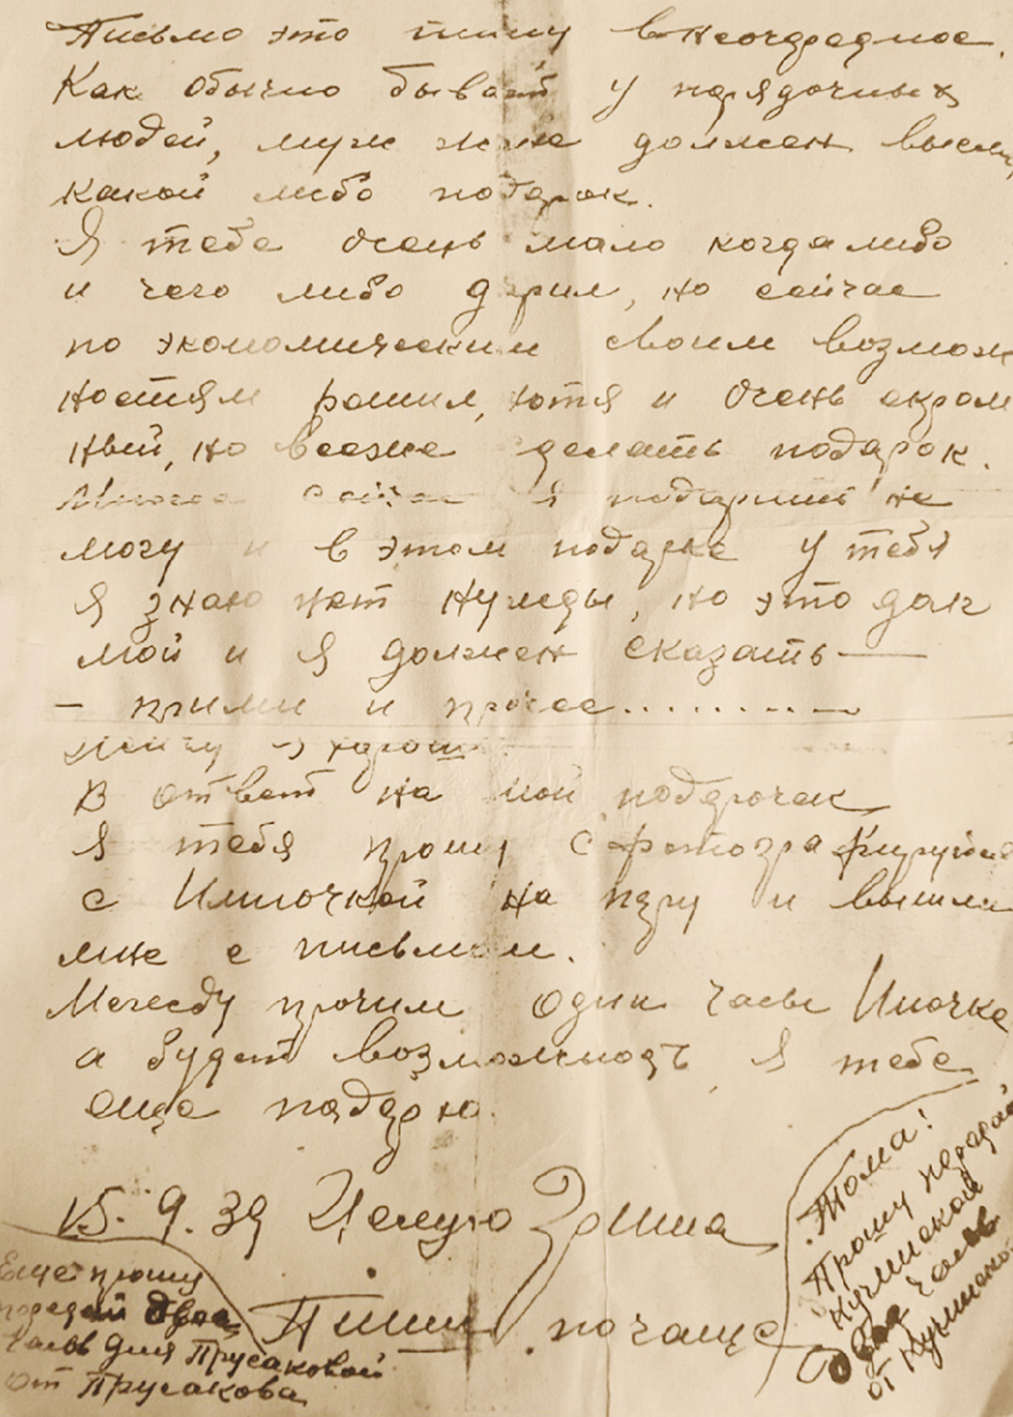 Письмо это пишу внеочередное.
Как обычно бывает у порядочных
людей, муж жене должен
какой либо подарок.
Я тебе очень мало когда либо
и чего либо дарил, но сейчас
по экономическим своим возмож
ностям решил, хотя и очень скром
ный, но всеже сделать подарок.
я подарить не
могу и в этом подарке у тебя
я знаю нет нужды, но это долг
мой и я должен сказать —
– прими и прочее..........
В ответ на мой подарочек
я тебя прошу
с Инночкой на пару и вышли
мне с письмом.
Между прочим один часы Иночке
а будет возможность я тебе
еще подарю.
15.9.39 Целую
Пиши почаще
Еще прошу
передай двое
часы для Прусаковой
от Прусакова
Тома!
Прошу передай
часы
от